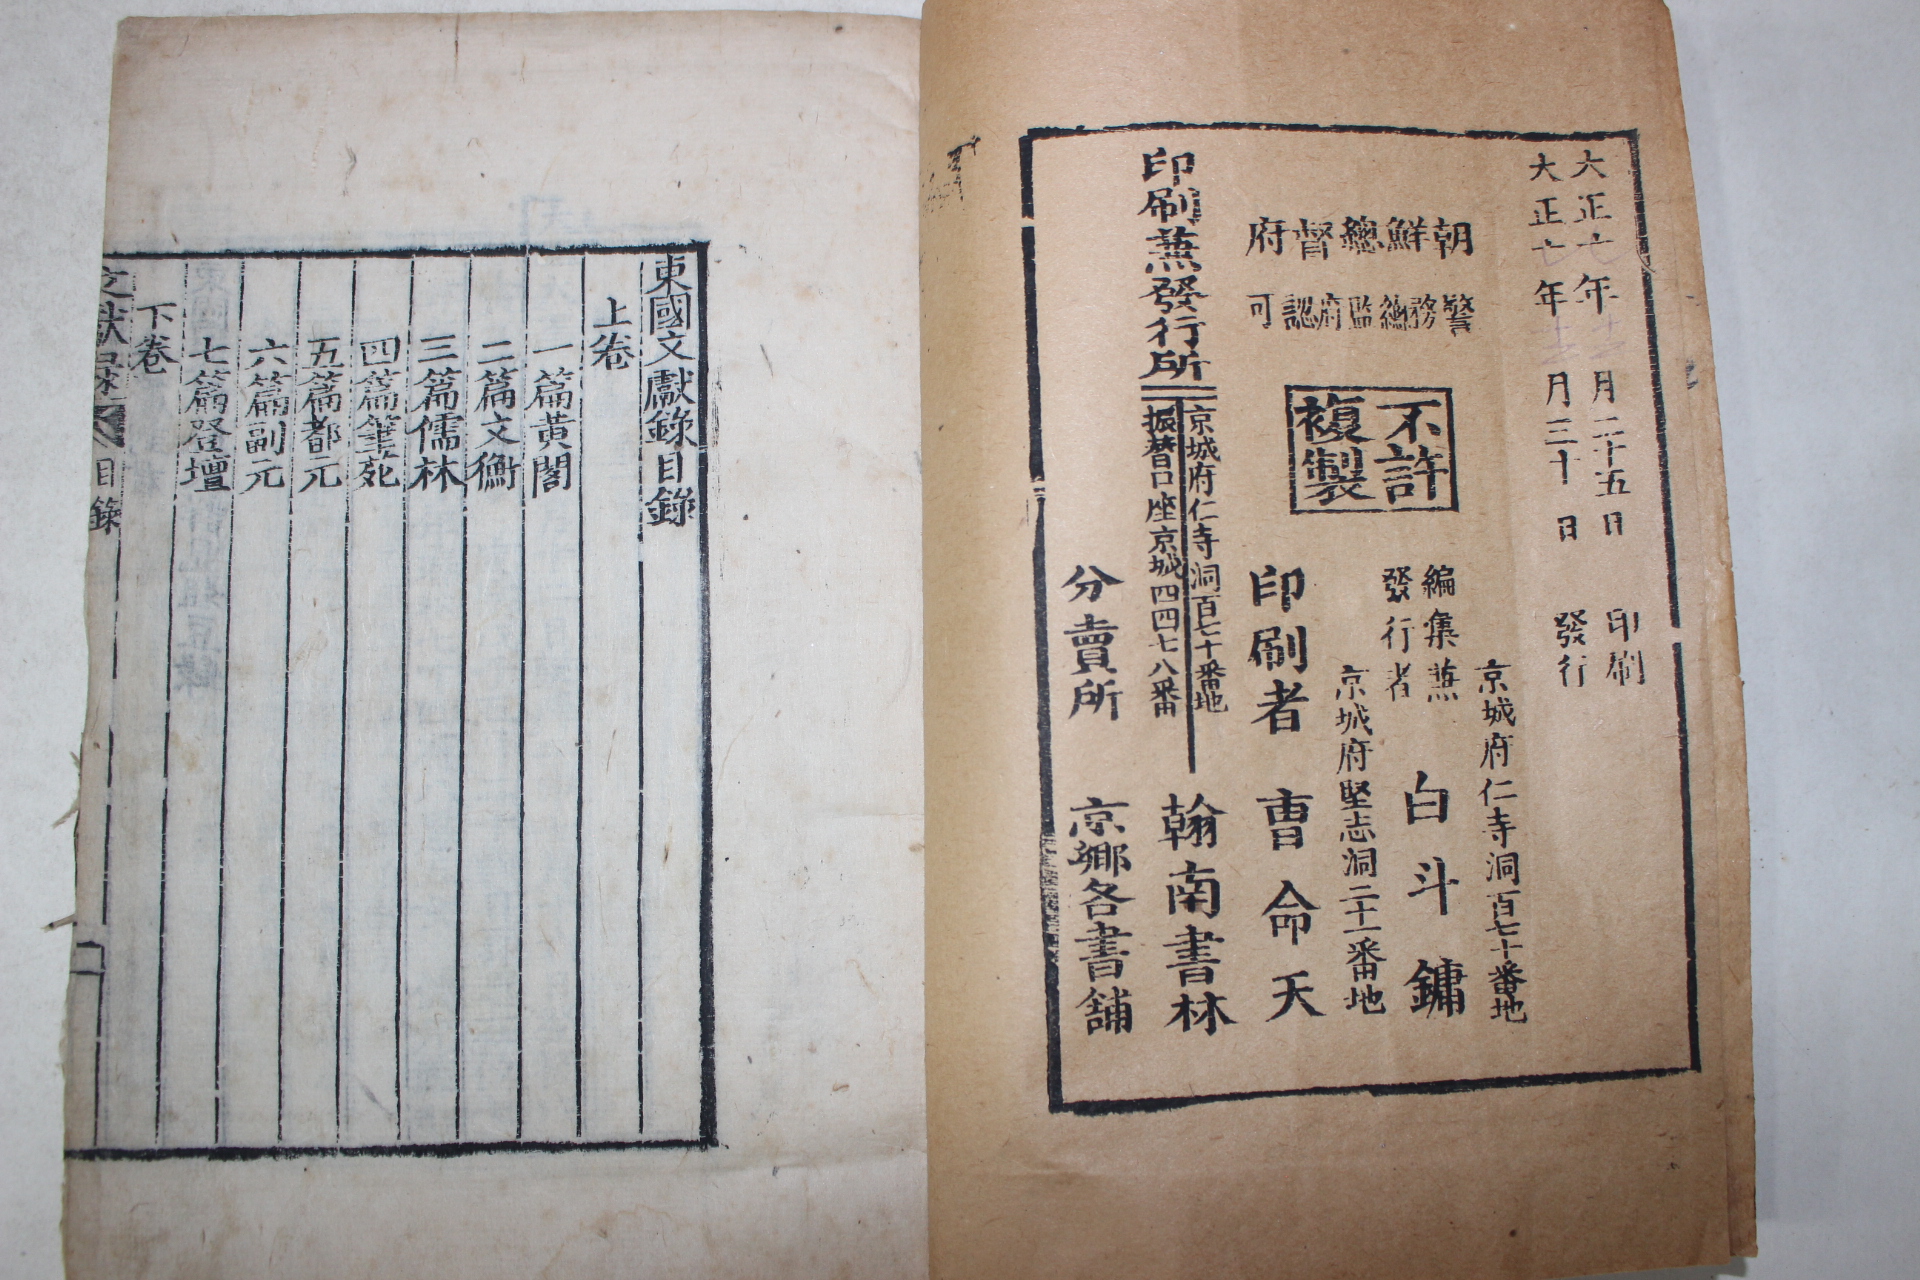 大正七年十一月二十五日 印刷
大正七年十一月三十日 發行
朝鮮總督府
警務總監府認可
不許
複製
京城府仁寺洞百七十番地
編集兼
發行者 白斗鏞
京城府堅志洞二十一番地
印刷者 曺命天
印刷兼發行所
京城府仁寺洞百七十番地
振替口座京城四四七八番
翰南書林
分賣所 京鄕各書舖
東國文獻錄目錄
上卷
一篇黃閣
二篇文衡
三篇儒林
四篇筆苑
五篇都元
六篇副元
七篇登壇
下卷
文獻錄 目錄 一